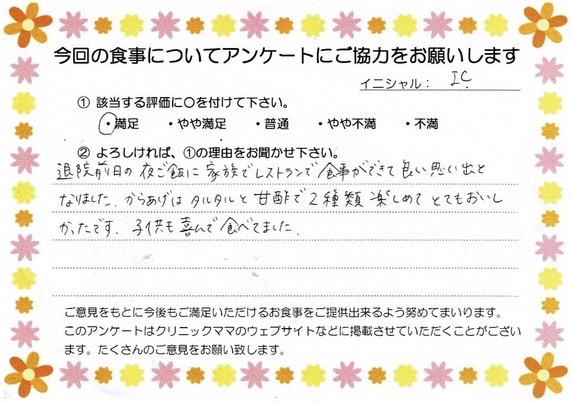 今回の食事についてアンケートにご協力をお願いします
イニシャル： I.C.
① 該当する評価に〇を付けて下さい。
・満足 ・やや満足 ・普通 ・やや不満 ・不満
② よろしければ、①の理由をお聞かせ下さい。
退院前日の夜ご飯に家族でレストランで食事ができて良い思い出と
なりました。からあげはタルタルと甘酢で2種類楽しめてとてもおいし
かったです。子供も喜んで食べてました。
ご意見をもとに今後もご満足いただけるお食事をご提供出来るよう努めてまいります。
このアンケートはクリニックママのウェブサイトなどに掲載させていただくことがござい
ます。たくさんのご意見をお願い致します。